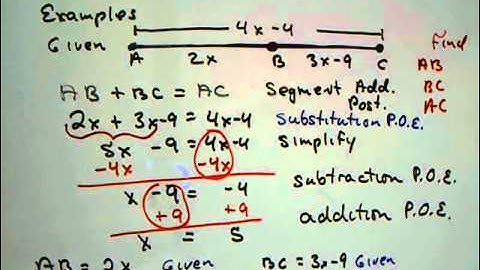 Examples
4x-4
Given A 2x B 3x-9 C Find
AB
AB + BC = AC Segment Add. BC
Post. AC
2x + 3x-9 = 4x-4 Substitution P.O.E.
5x -9 = 4x-4 Simplify
-4x -4x
x -9 = -4 subtraction P.O.E.
+9 +9 addition P.O.E.
x = 5
AB = 2x Given BC = 3x-9 Given